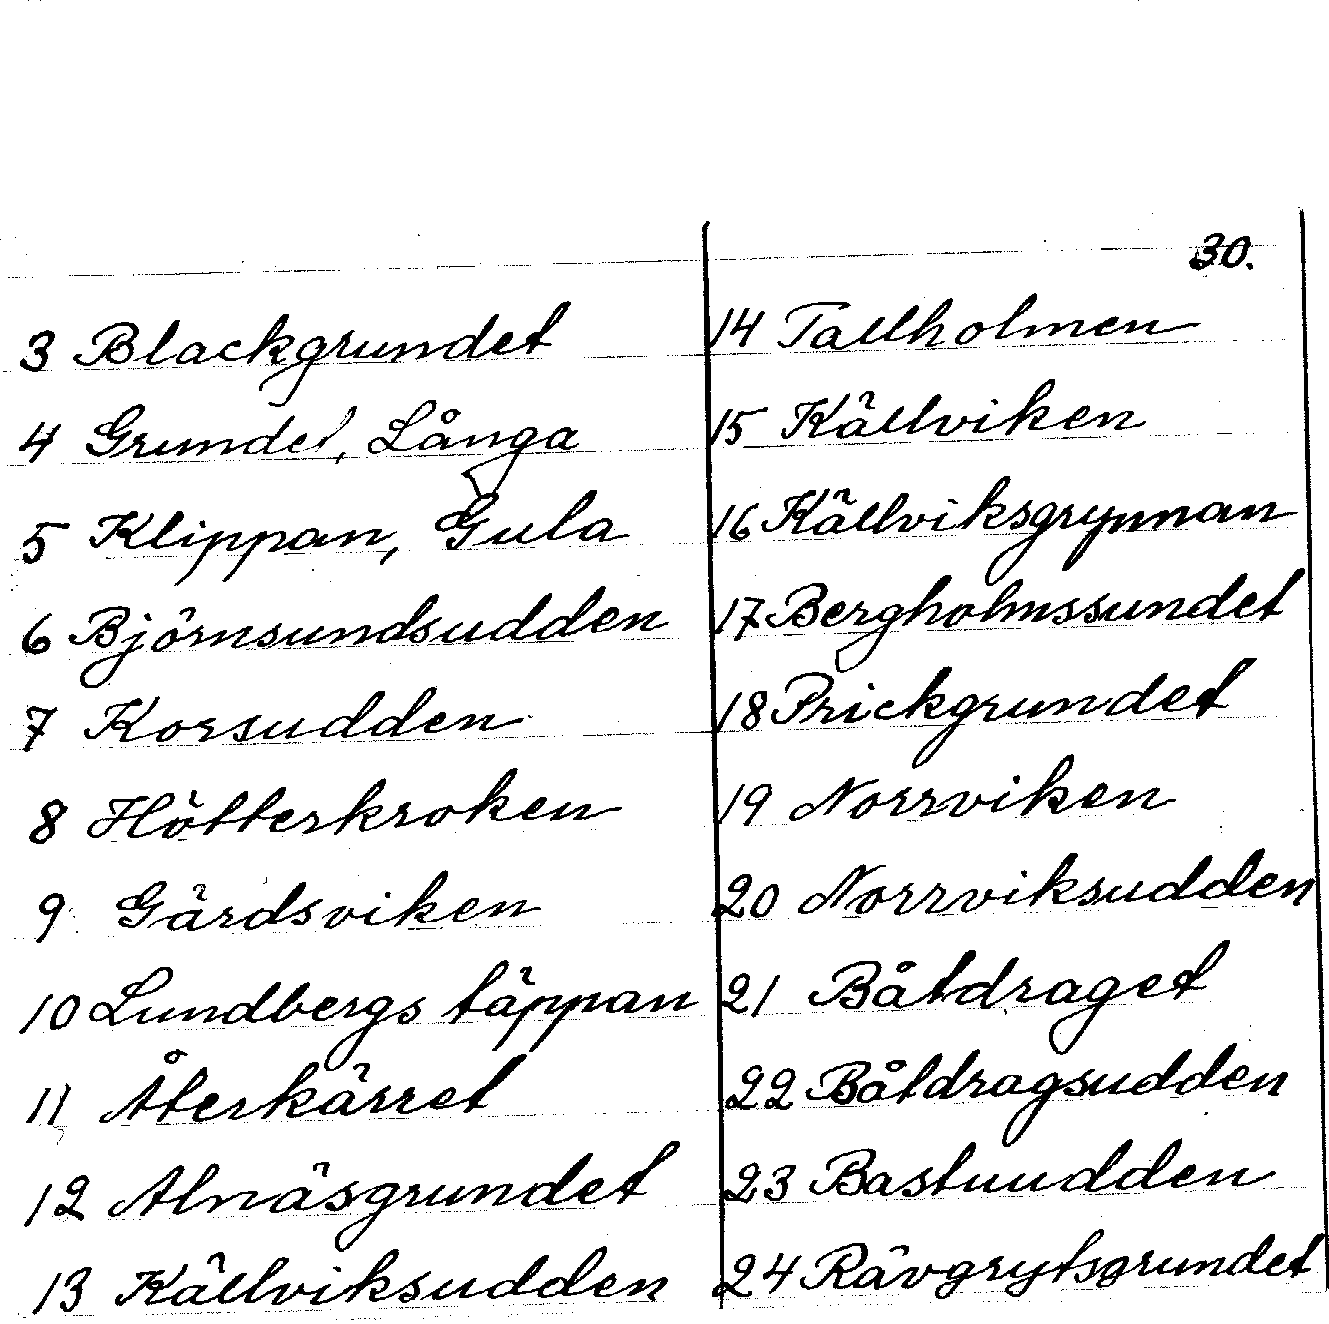 30.
3 Blackgrundet
4 Grundet, Långa
5 Klippan, Gula
6 Björnsundsudden
7 Korsudden
8 Hötterkroken
9 Gärdsviken
10 Lundbergs täppan
11 Återkärret
12 Alnäsgrundet
13 Källviksudden
14 Tallholmen
15 Källviken
16 Källviksgrynnan
17 Bergholmssundet
18 Prickgrundet
19 Norrviken
20 Norrviksudden
21 Båtdraget
22 Båtdragsudden
23 Bastuudden
24 Rävgrytsgrundet